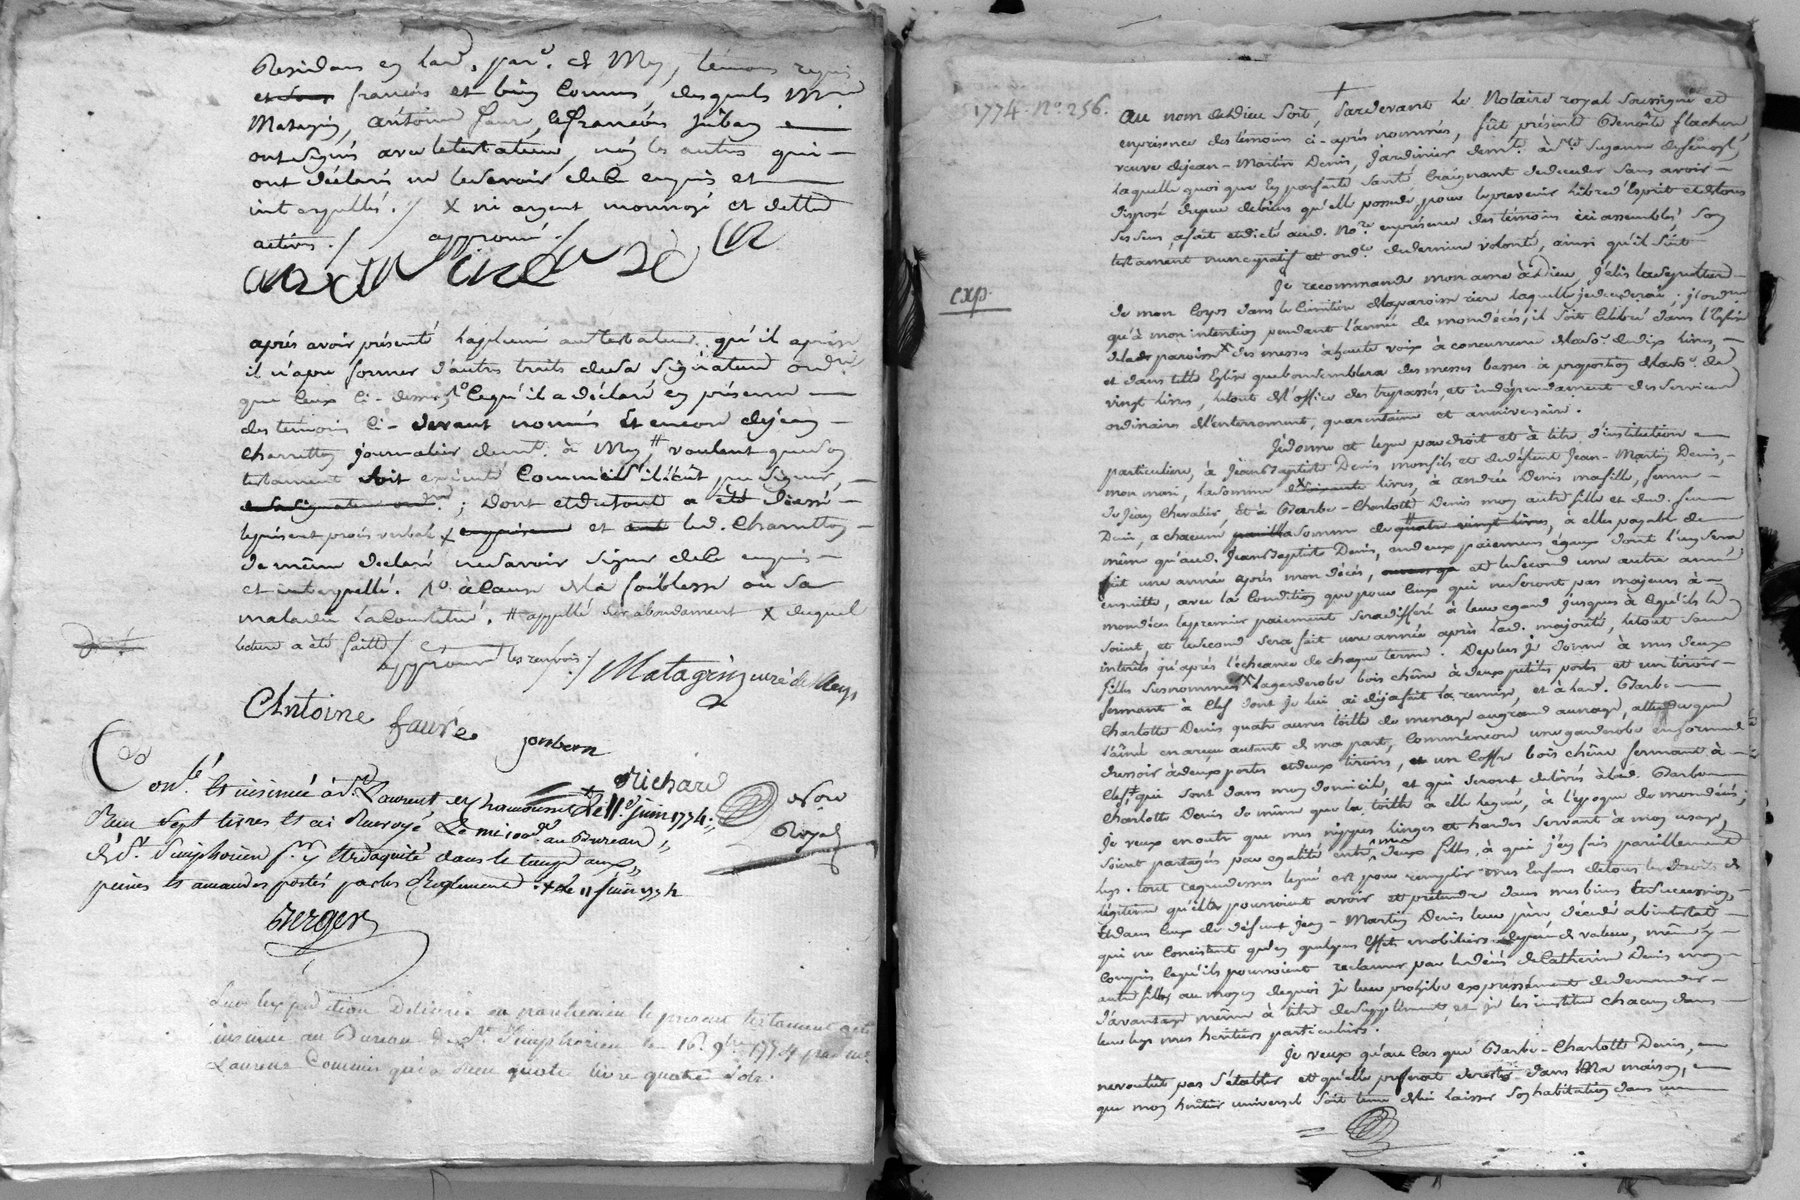 Residans en lad. par. et Mey, témoins requis
et françois et bien connus, desquels Mre
Matagrin, antoine faure, & françois
ont signés avec le testateur, non les autres qui
ont déclaré ne le savoir de ce enquis et
interpellés ./ x ni argent monnoyé et dettes
actives ./ approuvé ./
après avoir présenté la plume au testateur, qu'il a prise
il n'a pu former d'autres traits de sa signature ordre
que ceux ci-dessus, ce qu'il a déclaré en présence
des temoins ci-devant nommés et encore de jean
Charretton journalier demt. à Mey # voulant que son
testament soit exécuté comme s'il l'eût pu signer,
; Dont et du tout a été dressé
le présent procès verbal x et led. Charretton
de même declaré ne savoir signer de ce enquis
et interpellé. à cause de la foiblesse où sa
maladie la constitué. # appellé surabondament x duquel
lecture a été faitte/
approuvé les renvois ./ Matagrin curé de Meys
Antoine faure
Richard
Nore
Royal
Conlé. et insinué à St. Laurent de Chamousset le 11e juin 1774.
Reçu sept livres et ai renvoyé le me 100e au Bureau
de St. Simphorien pr. y etre aquité dans le temps aux
peines et amandes portés par les Reglement. le 11 juin 1774
Berger
Lue l'expédition Délivrée en parchemin le présent testament a été
insinué au Bureau de St. Simphorien le 16. 9bre 1774 par
Laurent Commis qui a reçu quatre livre quatre sols.
1774. No. 256.
exp.
Au nom de Dieu soit, Pardevant le Notaire royal soussigné et
en présence des témoins ci-après nommés, fût présente Benoîte flachere
veuve de jean-Martin Denis, jardinier demt. à Ste
laquelle quoi que en parfaite santé craignant de deceder sans avoir
disposé du peu de biens qu'elle possede, pour le prevenir libre d'Esprit et de tous
ses sens, a fait et dicté aud. Nore en présence des témoins ici assemblés son
testament nuncupatif et ordce de derniere volonté, ainsi qu'il suit
Je recommande mon ame à Dieu, j'élis la sepulture
de mon corps dans le cimetière de la paroisse rière laquelle je decederai; j'ordonne
qu'à mon intention pendant l'année de mon décès, il soit celebré dans l'Eglise
de lade paroisse x des messes à haute voix à concurrence de la se. de dix livres,
et dans telle Eglise que bon semblera des messes basses à proportion de la se. de
vingt livres, le tout de l'office des trepassés, et indépendament des services
ordinaires de l'enterrement, quarantaine et anniversaire.
Je donne et legue par droit et à titre d'institution
particuliere, à jean Baptiste Denis mon fils et du défunt Jean-Martin Denis,
mon mari, la somme de soixante livres, à andrée Denis ma fille, femme
de Jean Chevalier, et à Barbe-Charlotte Denis mon autre fille et dud. feu
Denis, a chacune la somme de quatre vingt livres, a elles payable de
même qu'aud. Jean Baptiste Denis, en deux paiemens égaux dont l'un sera
fait une année après mon décès, et le second une autre année
ensuitte, avec la condition que pour ceux qui ne seront pas majeurs à
mon décès le premier paiement sera differé à leur egard jusques à ce qu'ils le
soient, et le second sera fait une année après lad. majorité, le tout sans
interêts qu'après l'écheance de chaque terme. De plus je donne à mes deux
filles susnommées x la garderobe bois chêne à deux petites portes et un tiroir
fermant à clef dont je lui ai déja fait la remise, et à lad. Barbe
Charlotte Denis quatre aunes toille de menage au grand aunage, attendu que
l'ainé en a reçu autant de ma part, comme encore une garderobe en forme de
dressoir à deux portes et deux tiroirs, et un coffre bois chêne fermant à
clef, qui sont dans mon domicile, et qui seront delivrés à lad. Barbe
Charlotte Denis de même que la toille à elle leguée, à l'époque de mon décès;
je veux en outre que mes nippes linges et hardes servant à mon usage,
soient partagés par egalité entre mes deux filles, à qui j'en fais pareillement
legs. tout ce que dessus legué est pour remplir mes Enfans de tous les droits de
légitime qu'elles pourroient avoir et prétendre dans mes biens et succession,
et dans ceux de defunt jean-Martin Denis leur père décédé ab intestat
qui ne consistent qu'en quelques effets mobiliers de peu de valeur, même y
compris ce qu'ils pourroient reclamer par le décès de Catherine Denis mon
autre fille, au moyen de quoi je leur prohibe expressement de demander
d'avantage même à titre de supplément, et je les institue chacun dans
leur legs mes héritiers particuliers.
Je veux qu'au cas que Barbe-Charlotte Denis,
ne voulût pas s'établir et qu'elle preferat de rester dans Ma maison,
que mon heritier universel soit tenu de lui laisser son habitation dans